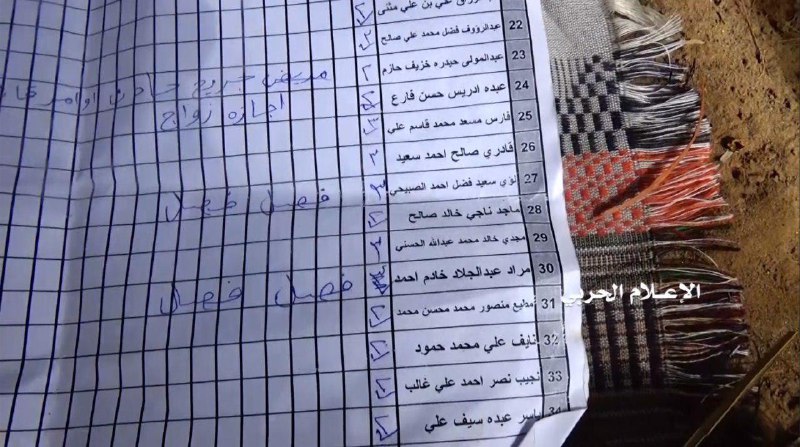 علي بن علي مثنى
22 عبدالرؤوف فضل محمد علي صالح
23 عبدالمولى حيدره خزيف حازم
24 عبده ادريس حسن فارع
مريض جريح
اجازه زواج
25 فارس مسعد محمد قاسم علي
26 قادري صالح احمد سعيد
27 لؤي سعيد فضل احمد الصبيحي
فصل فصل
28 ماجد ناجي خالد صالح
29 مجدي خالد محمد عبدالله الحسني
30 مراد عبدالجلاد خادم احمد
فصل فصل
31 مطيع منصور محمد محسن محمد
32 نايف علي محمد حمود
33 نجيب نصر احمد علي غالب
34 ياسر عبده سيف علي
الإعلام الحربي